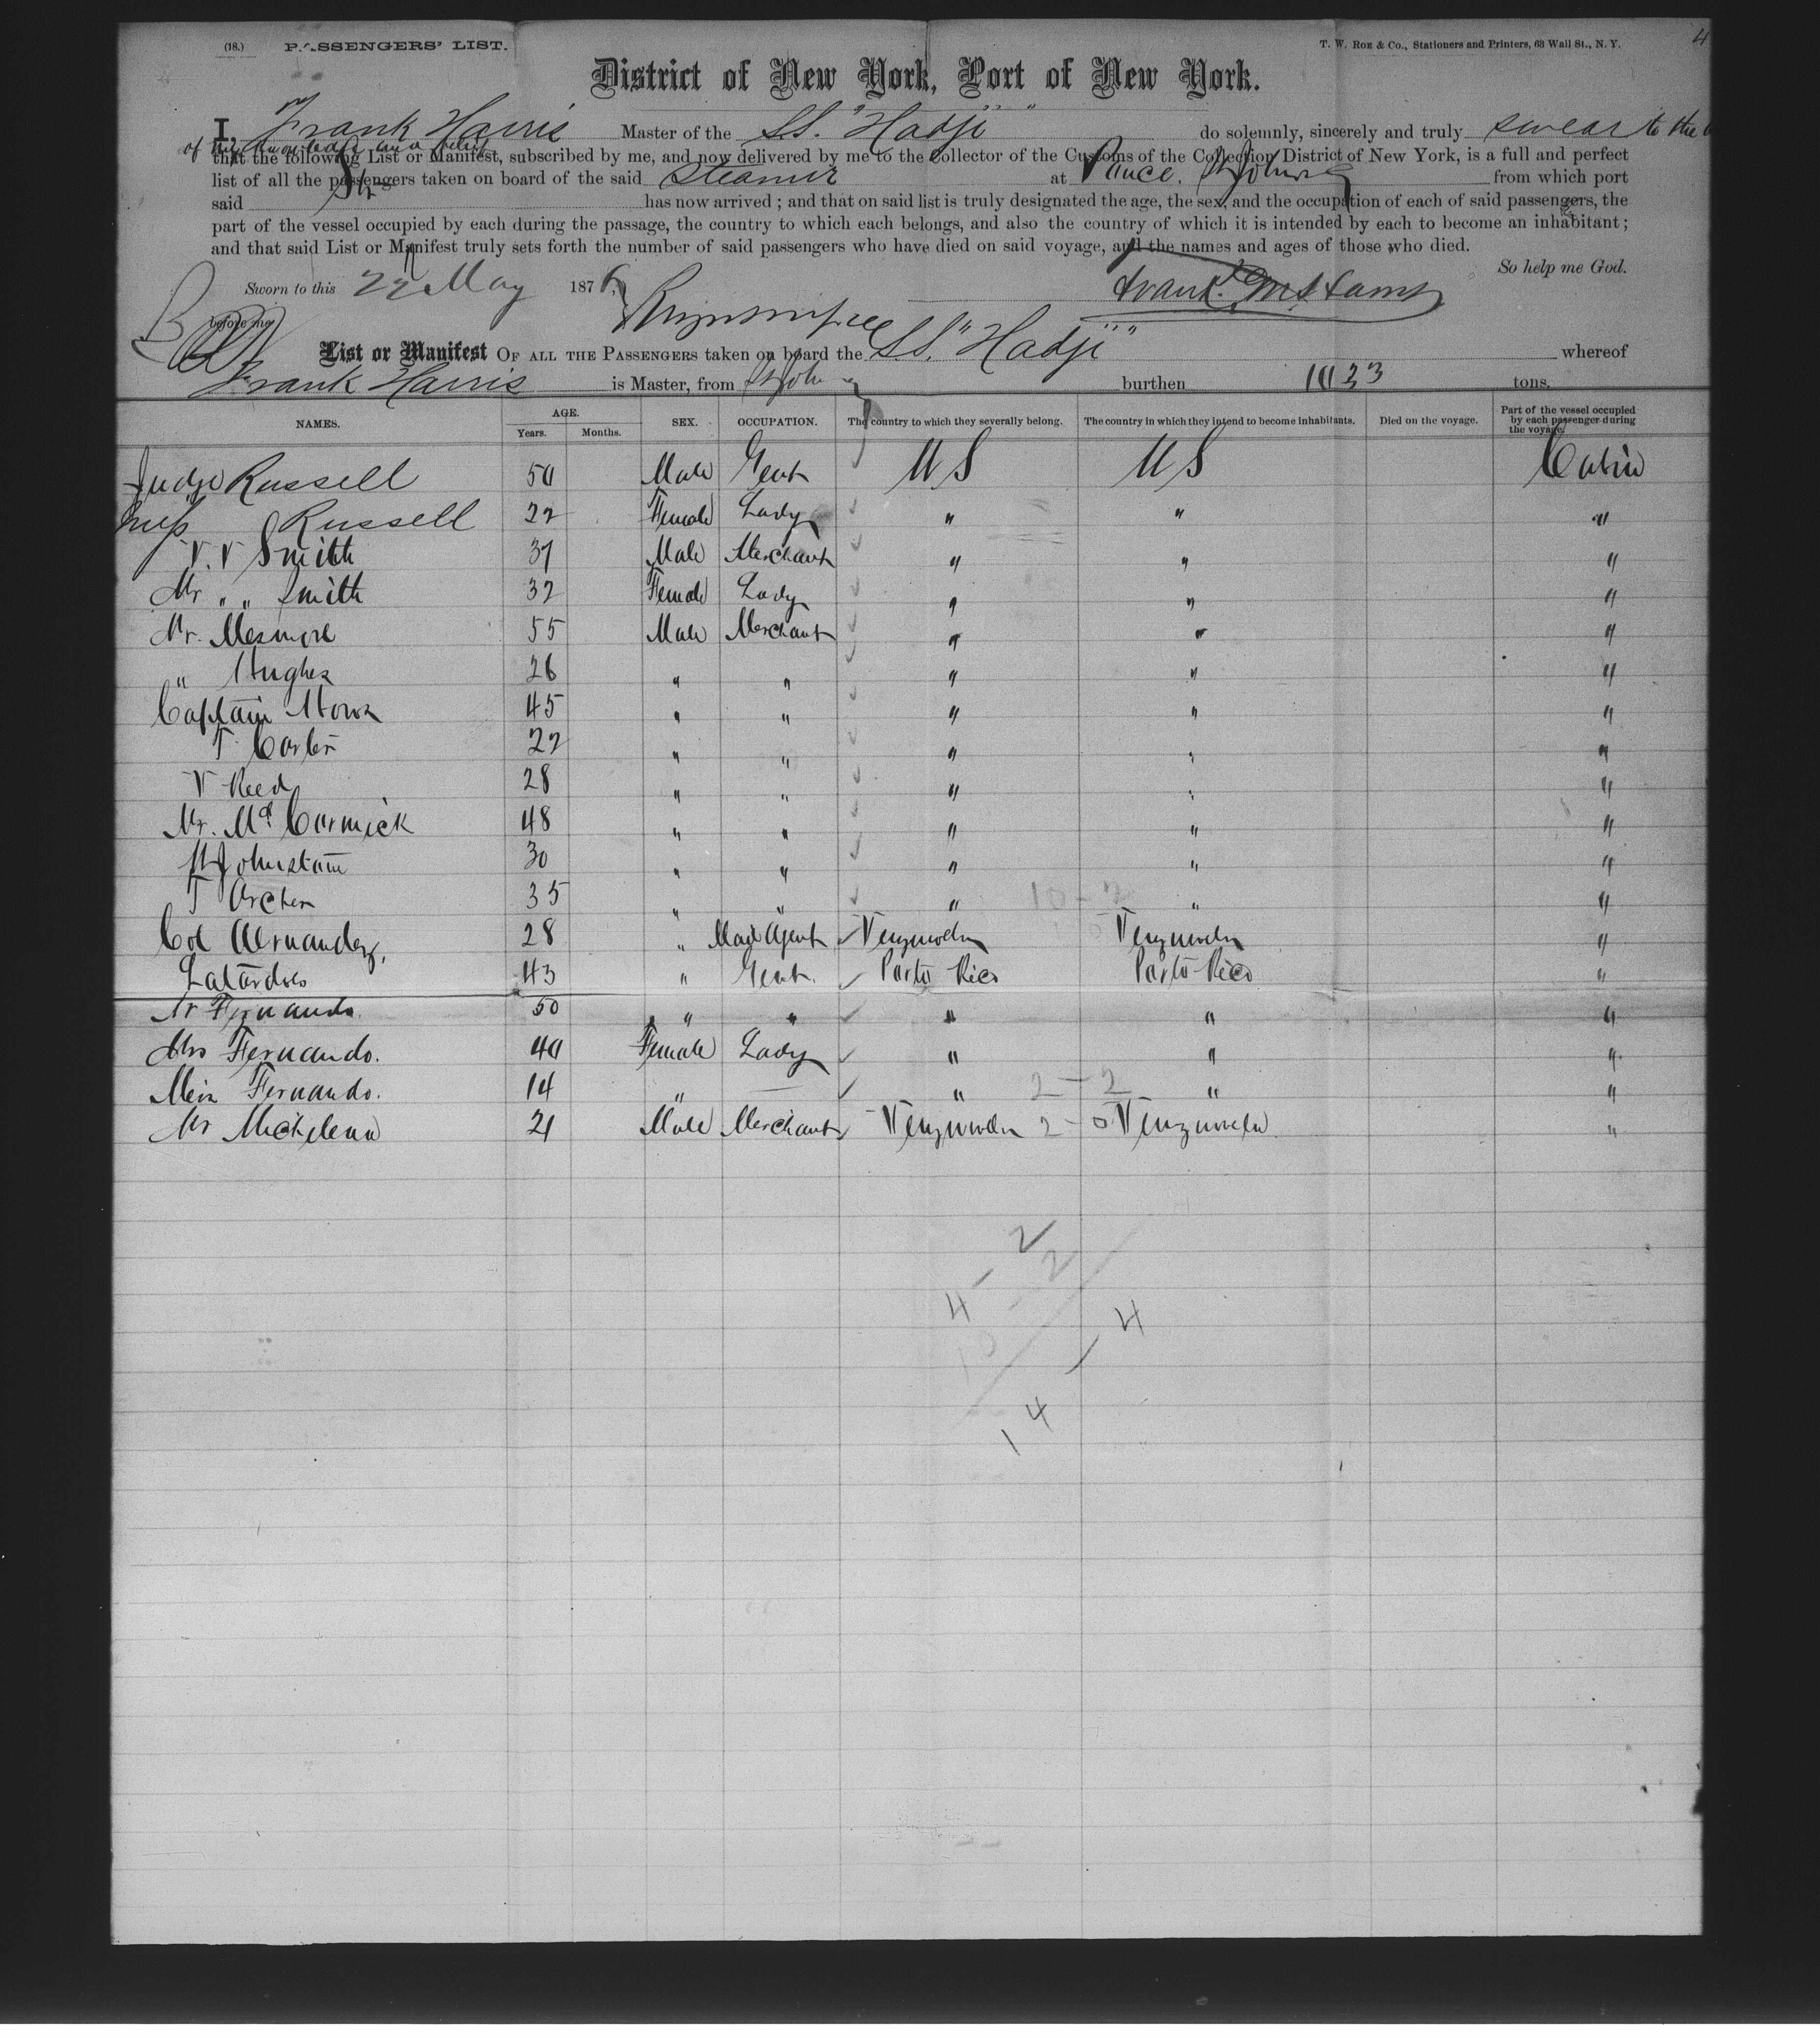 (18.) PASSENGERS' LIST.
T. W. Roe & Co., Stationers and Printers, 63 Wall St., N. Y. 4
District of New York, Port of New York.
I, Frank Harris Master of the SS. "Hadji" do solemnly, sincerely and truly swear to the
of my knowledge and belief
that the following List or Manifest, subscribed by me, and now delivered by me to the Collector of the Customs of the Collection District of New York, is a full and perfect
list of all the passengers taken on board of the said Steamer at Ponce. St Johns from which port
said Str has now arrived ; and that on said list is truly designated the age, the sex, and the occupation of each of said passengers, the
part of the vessel occupied by each during the passage, the country to which each belongs, and also the country of which it is intended by each to become an inhabitant ;
and that said List or Manifest truly sets forth the number of said passengers who have died on said voyage, and the names and ages of those who died.
So help me God.
Sworn to this 22 May 1876,
before me
List or Manifest OF ALL THE PASSENGERS taken on board the SS. "Hadji" whereof
Frank Harris is Master, from St John burthen 1033 tons.
NAMES. AGE. Years. Months. SEX. OCCUPATION. The country to which they severally belong. The country in which they intend to become inhabitants. Died on the voyage. Part of the vessel occupied by each passenger during the voyage.
Judge Russell 50 Male Gent U S U S Cabin
Miss Russell 22 Female Lady " " "
V. V Smith 37 Male Merchant " " "
Mr " " Smith 32 Female Lady " " "
Mr. 55 Male Merchant " " "
" Hughes 26 " " " " "
Captain 45 " " " " "
T. 22 " " " " "
V Reed 28 " " " " "
Mr. McCormick 48 " " " " "
30 " " " " "
T Archer 35 " " " " "
Col Hernandez, 28 " Mail Agent Venzuela Venzuela "
43 " Gent. Porto Rico Porto Rico "
Mr Fernando. 50 " " " " "
Mrs Fernando. 40 Female Lady " " "
Miss Fernando. 14 " — " " "
Mr Michelena 21 Male Merchant Venzuela Venzuela "
2 - 2
4 - 2
2
4
14